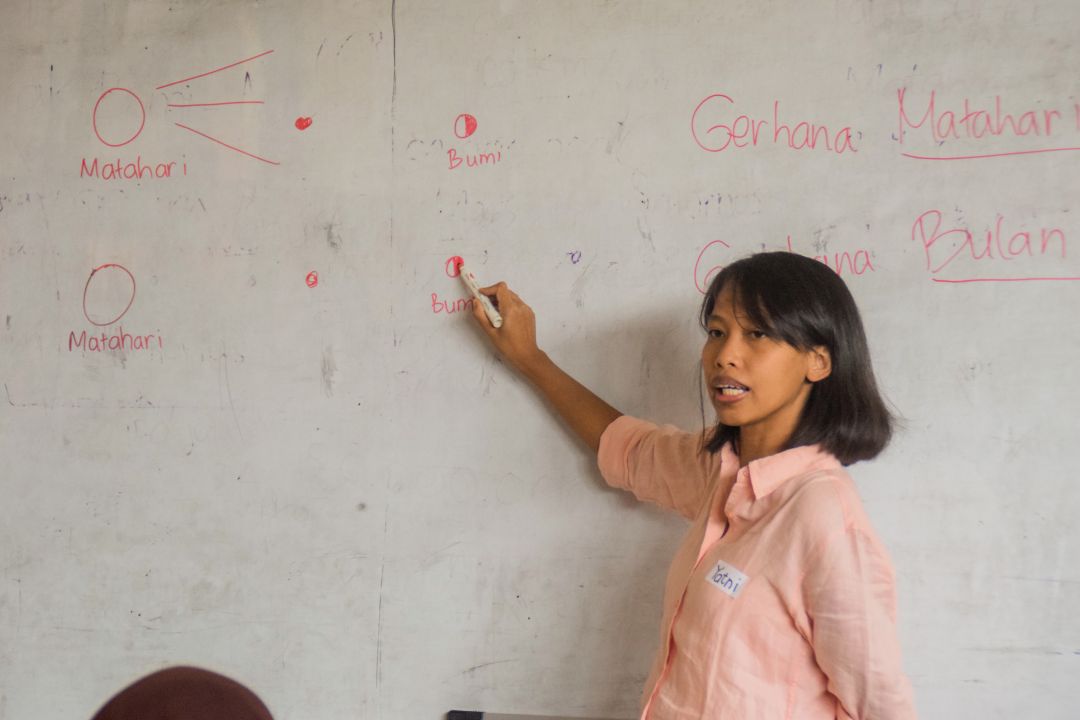 Matahari
Bumi
Gerhana Matahari
Matahari
Bumi
Gerhana Bulan
Yatni